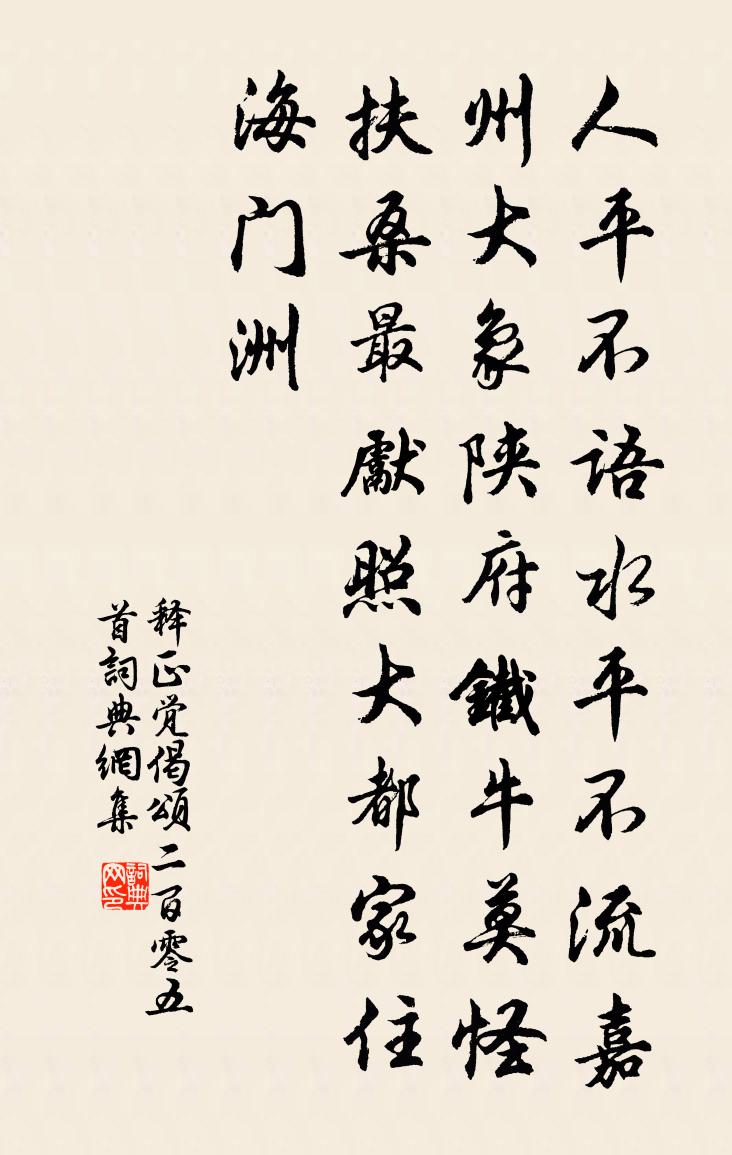 人平不语水平不流嘉
州大象陕府鐵牛莫怪
扶桑最獻照大都家住
海门洲
释正觉偈頌二百零五
首詞典網集
詞典网印